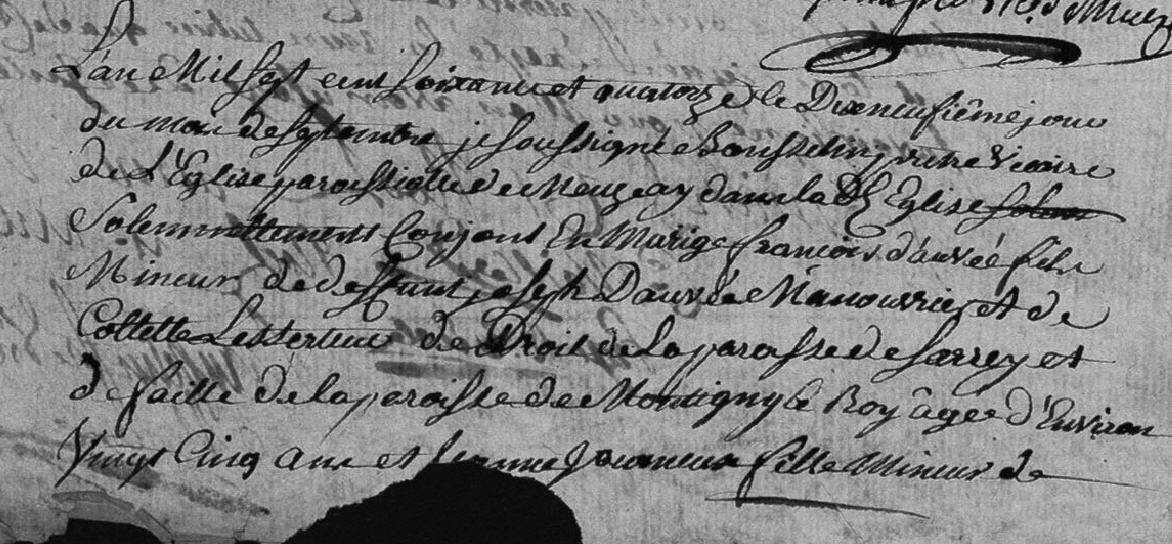 L'an Mil sept cent soixante et quatorze le Dixneufiême jour
du mois de septembre je soussigné Bousselin, pretre Vicaire
de L'Eglise paroissialle de Meuzeay dans la d. Eglise
Solemnellement Conjoint En Marige francois dauvée fils
Mineur de deffunt joseph Dauvée Manouvrier et de
Collette de Droit de la paroisse de Sarrey et
de faitte de la paroisse de Montigny le Roy âgée d'Environ
Vingt Cinq ans et fille Mineur de